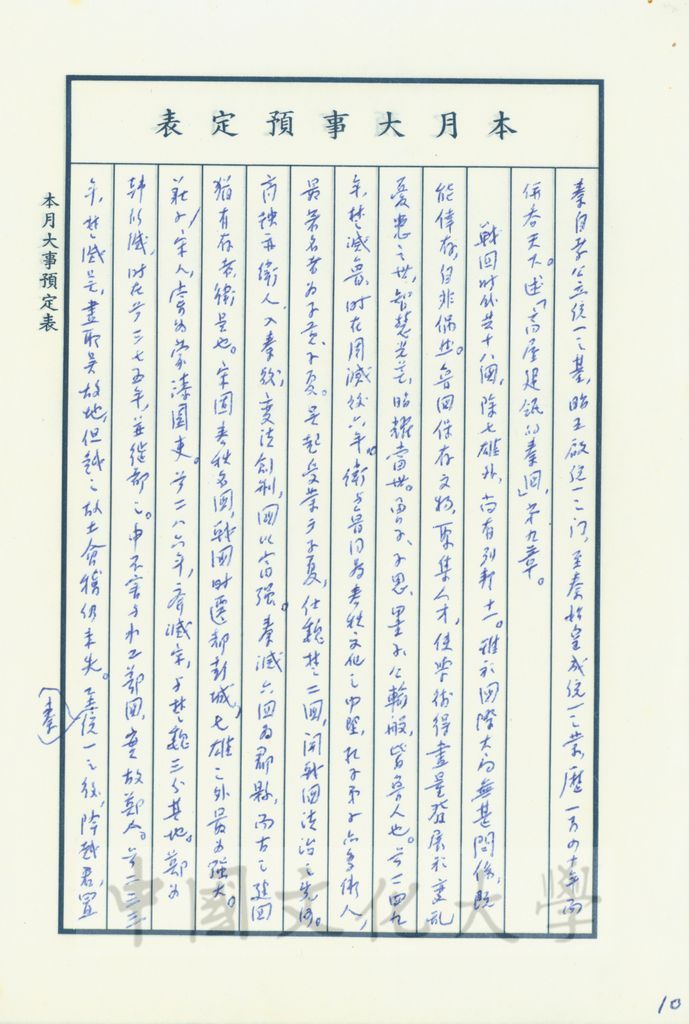 本月大事預定表
秦自孝公立統一之基，昭王啟統一之门，至秦始皇成統一之業，歷一百四十年而
併吞天下。述「高屋建瓴的秦國」第九章。
戰国时外共十八國，除七雄外，尚有列邦十一。雖於国際大局無甚関係，既
能倖存，自非偶然。魯国保存文物，聚集人才，使学術得盡量發展於變乱
憂患之世，智慧光芒，昭耀當世。曾子、子思、墨子、公輸般，皆魯人也。前二四九
年，楚滅魯，时在周滅後六年。衛与魯同為春秋文化之中堅，孔子弟子亦多衛人，
最著名者为子貢、子夏。吳起受業于子夏，仕魏楚二国，開戰国法治之先河。
商鞅亦衛人，入秦後，變法創制，国以富强。秦滅六国为郡縣，而古之建国
猶有存者，衛是也。宋国春秋名國，戰国时遷都彭城，七雄之外最为强大。
莊子，宋人，嘗为蒙漆園吏。前二八六年，齊滅宋，与楚魏三分其地。鄭为
韩所滅，时在前三七五年，並徙都之。申不害与水工鄭国，實故鄭人。前三三三
年，楚滅越，盡取吳故地，但越之故土會稽仍未失。至秦統一之後，降越君，置
〔秦〕
本月大事預定表
中國文化大學
10